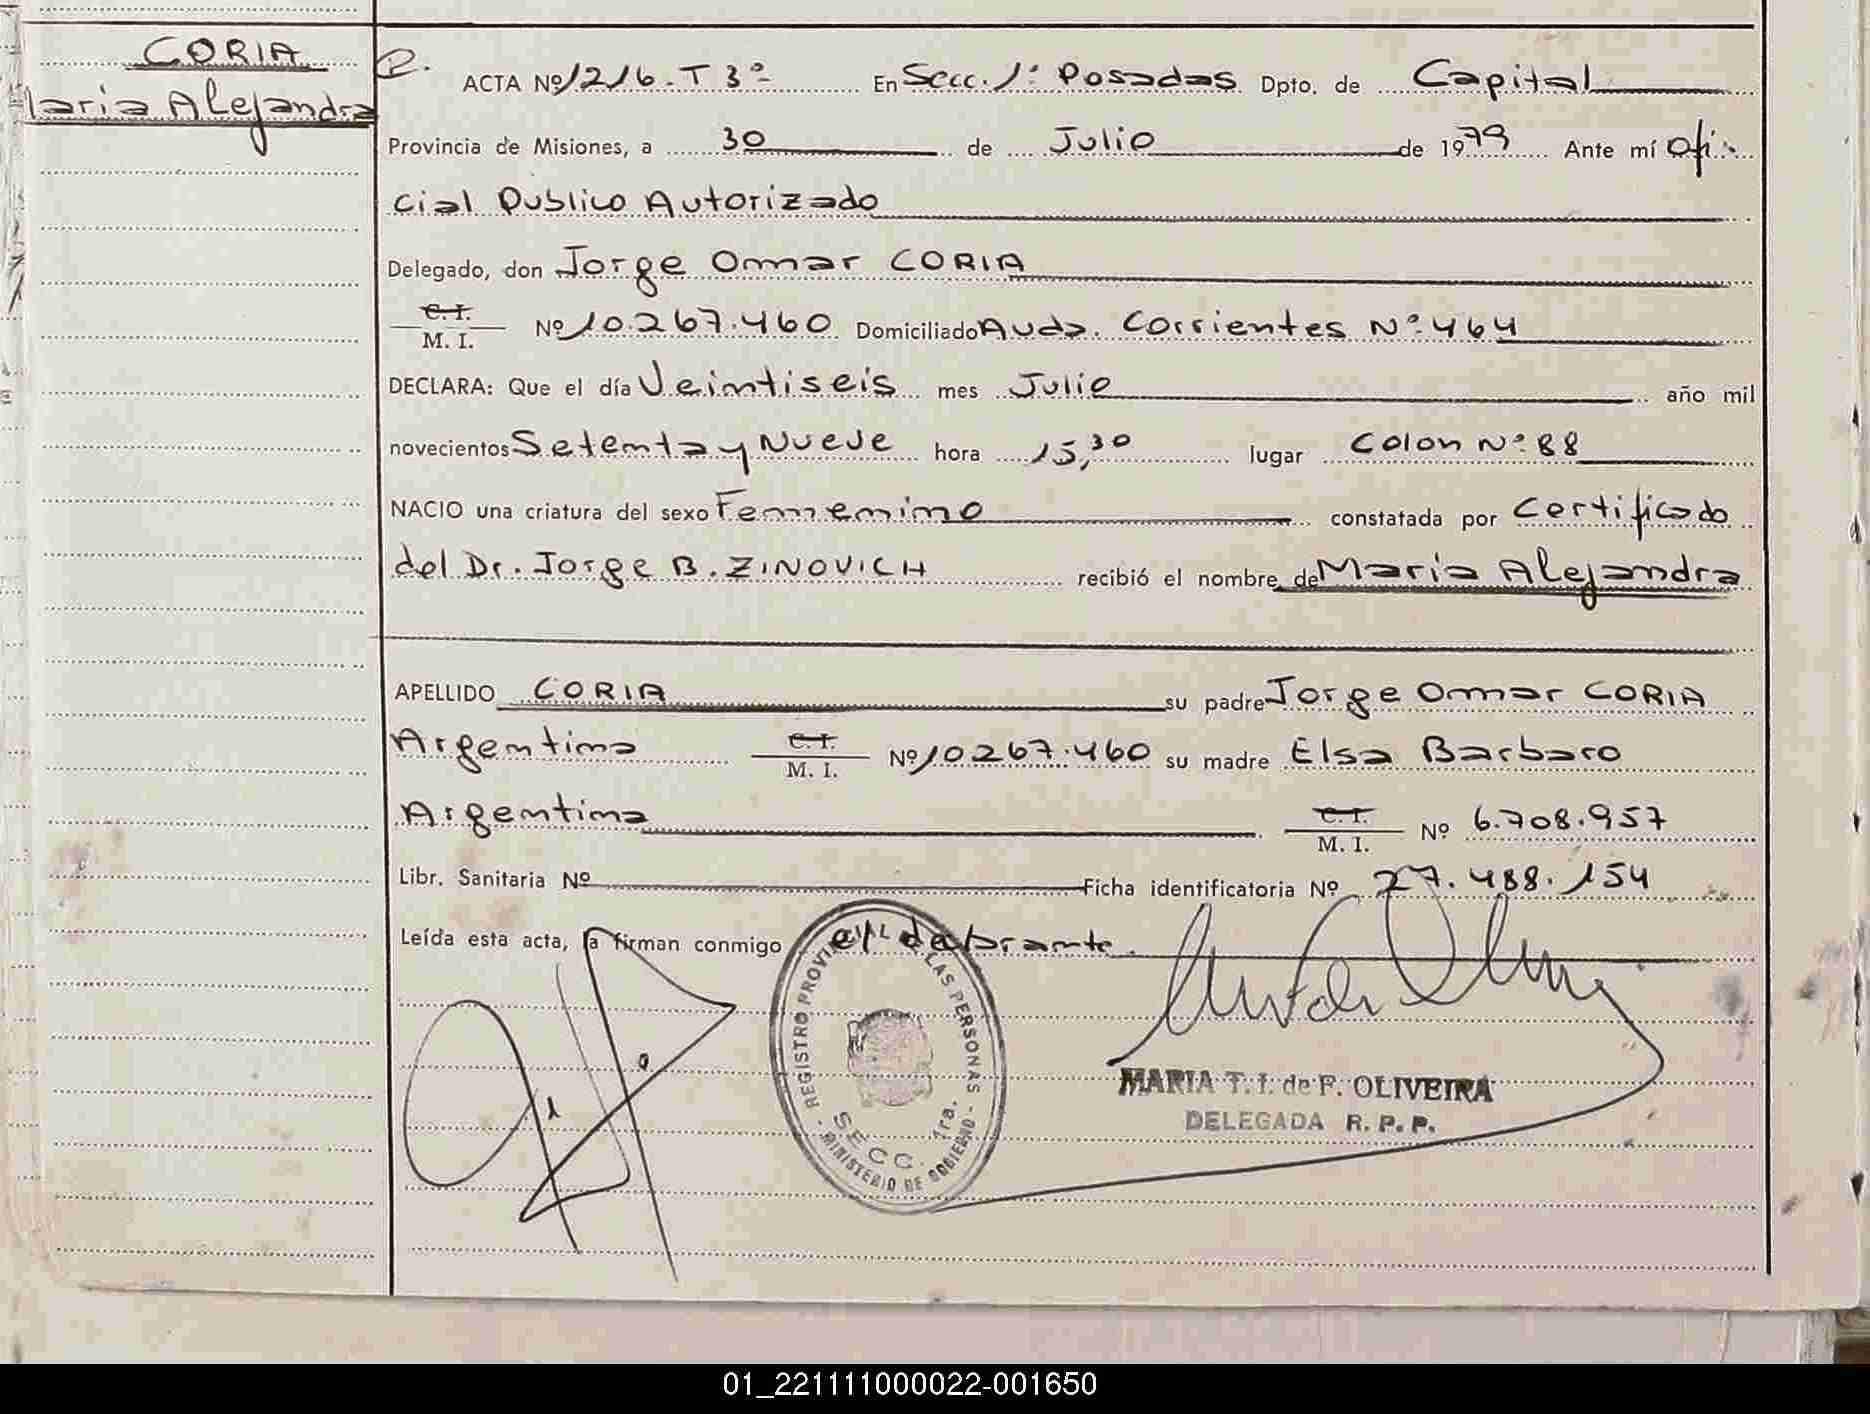 CORIA
Maria Alejandra
ACTA Nº 1216 - T 3º - En Secc. 1ª Posadas Dpto. de Capital
Provincia de Misiones, a 30 de Julio de 1979 Ante mí Ofi-
cial Publico Autorizado
Delegado, don Jorge Omar CORIA
C. I.
M. I. Nº 10.267.460 Domiciliado Avda. Corrientes Nº 464
DECLARA: Que el día Veintiseis mes Julio año mil
novecientos Setenta y Nueve hora 15,30 lugar Colon Nº 88
NACIO una criatura del sexo Femenino constatada por Certificado
del Dr. Jorge B. ZINOVICH recibió el nombre de Maria Alejandra
APELLIDO CORIA su padre Jorge Omar CORIA
Argentino C. I. M. I. Nº 10.267.460 su madre Elsa Barbaro
Argentina C. I. M. I. Nº 6.708.957
Libr. Sanitaria Nº Ficha identificatoria Nº 27.488.154
Leída esta acta, la firman conmigo el declarante.
REGISTRO PROVINCIAL LAS PERSONAS
SECC. 1ra.
- MINISTERIO DE GOBIERNO -
MARIA T. I. de F. OLIVEIRA
DELEGADA R. P. P.
01_221111000022-001650